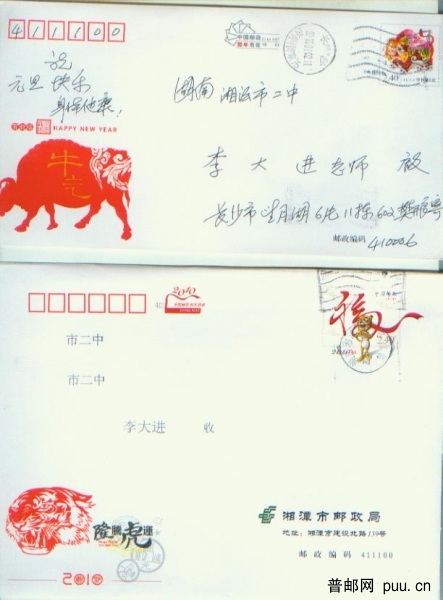 411100
中国邮政
祝
元旦快乐
身体健康！
湖南 湘潭市二中
HAPPY NEW YEAR
牛
李大进老师 收
长沙市望月湖6片11栋602
邮政编码
410006
2010
市二中
市二中
李大进 收
福
2.40
隆腾虎運
2010
湘潭市邮政局
地址：湘潭市建设北路139号
邮政编码 411100
普邮网 puu.cn